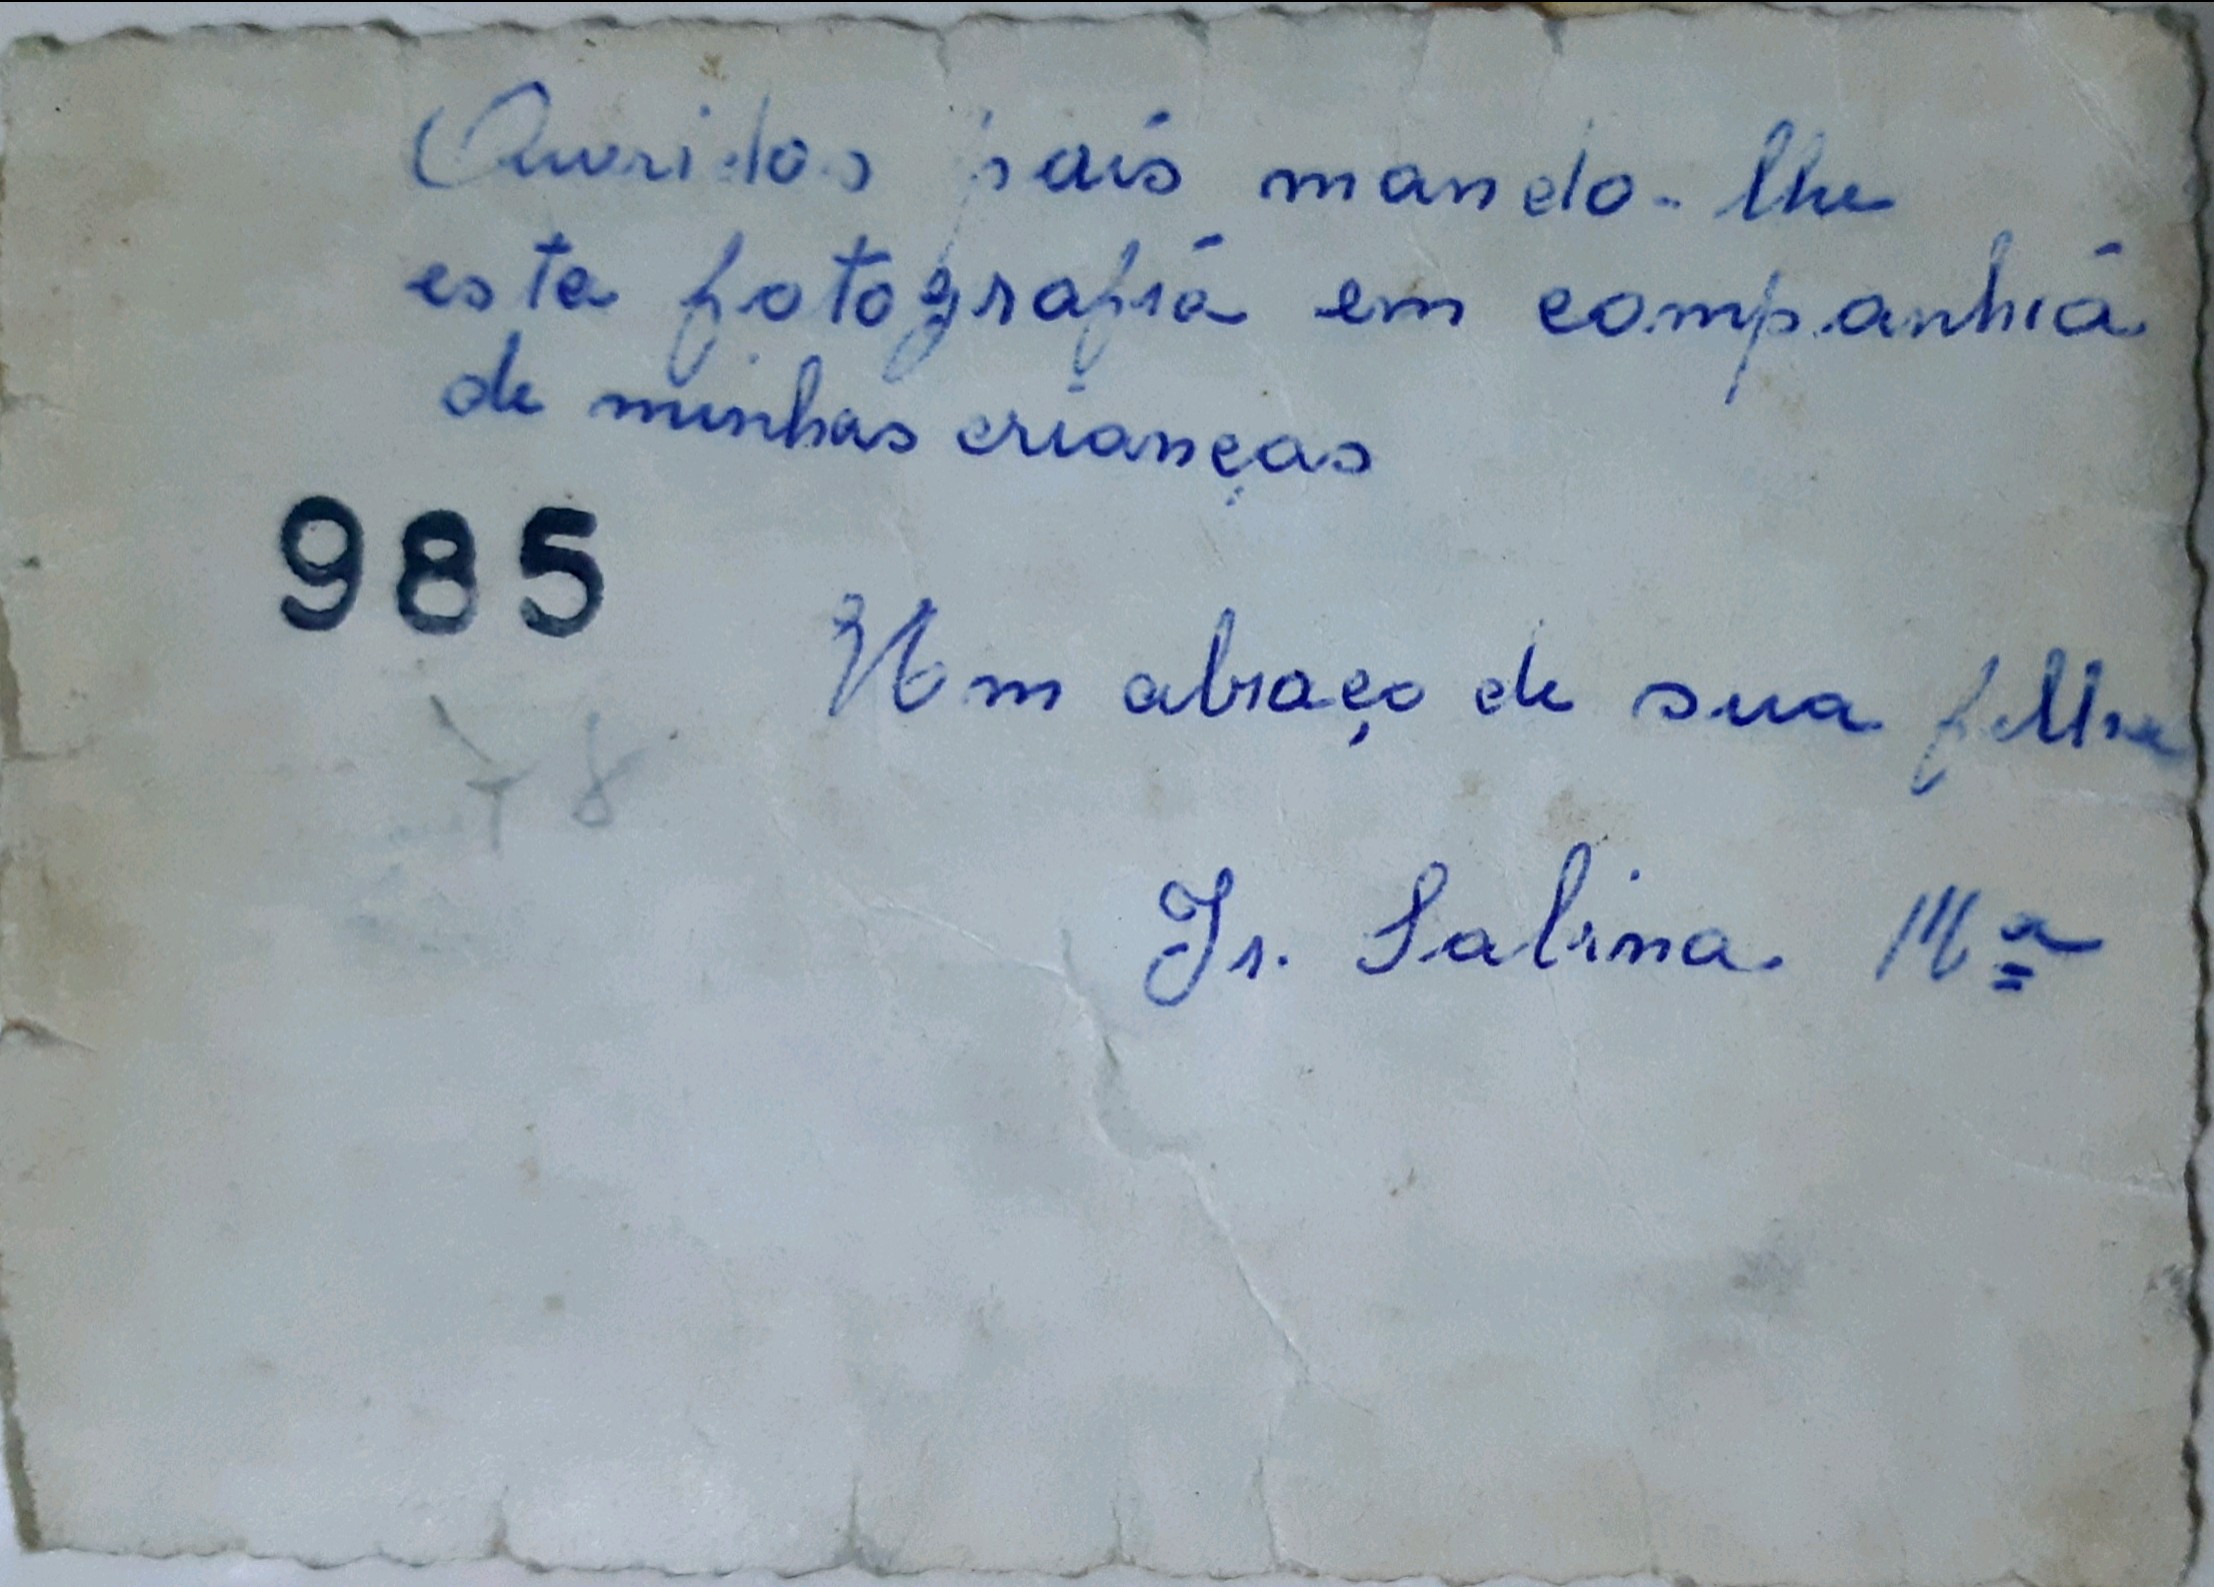 Queridos pais mando-lhe
esta fotografia em companhia
de minhas crianças
985
Um abraço de sua filha
Ir. Sabina Mª